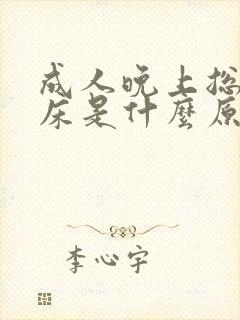 成人晚上总
床是什麼原
李心宇